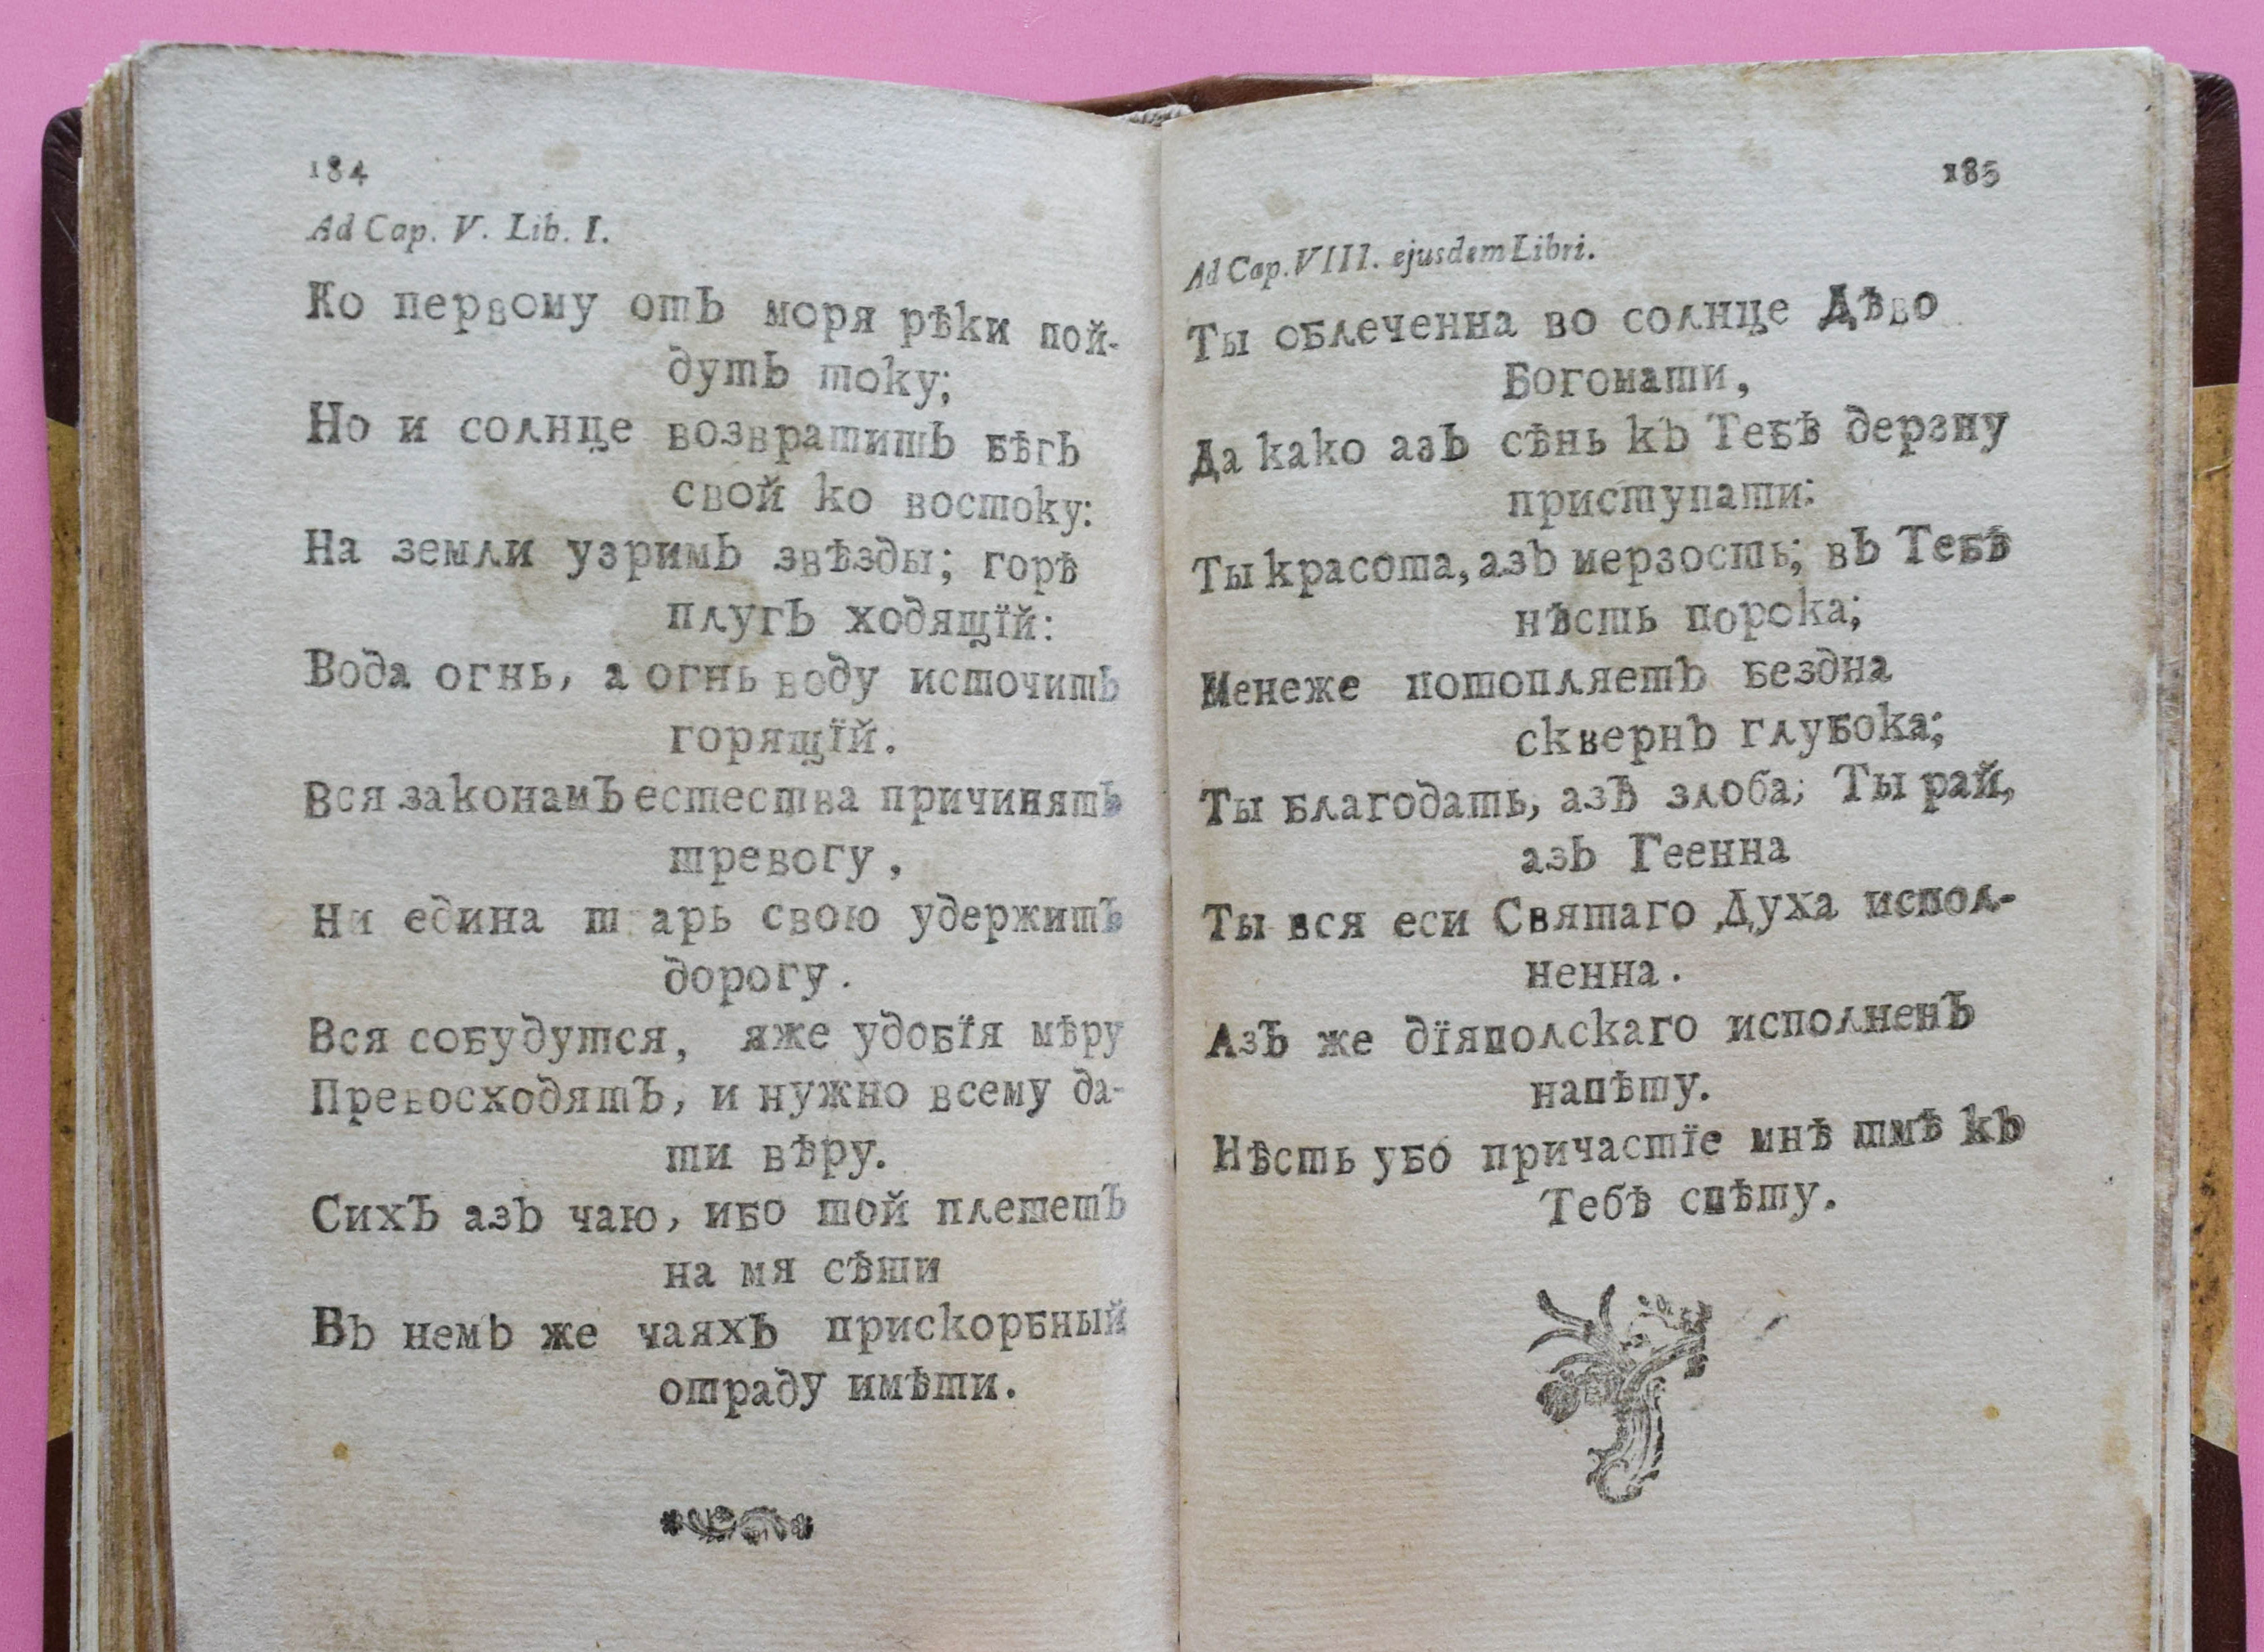 184
Ad Cap. V. Lib. I.
Ко первому отЪ моря рѣки пой-
дутЪ току;
Но и солнце возвратитЪ бѣгЪ
свой ко востоку:
На земли узримЪ звѣзды; горѣ
плугЪ ходящїй:
Вода огнь, а огнь воду источитЪ
горящїй.
Вся законамЪ естества причинятЪ
тревогу,
Ни едина т арь свою удержитЪ
дорогу.
Вся собудутся, яже удобїя мѣру
ПревосходятЪ, и нужно всему да-
ти вѣру.
СихЪ азЪ чаю, ибо той плететЪ
на мя сѣти
ВЪ немЪ же чаяхЪ прискорбный
отраду имѣти.
185
Ad Cap. VIII. ejusdem Libri.
Ты облеченна во солнце Дѣво
Богомати,
Да како азЪ сѣнь кЪ Тебѣ дерзну
приступати:
Ты красота, азЪ мерзость; вЪ Тебѣ
нѣсть порока;
Менеже потопляетЪ бездна
сквернЪ глубока;
Ты благодать, азЪ злоба; Ты рай,
азЪ Геенна
Ты вся еси Святаго Духа испол-
ненна.
АзЪ же дїяполскаго исполненЪ
напѣту.
Нѣсть убо́ причастїе мнѣ тмѣ кЪ
Тебѣ спѣту.